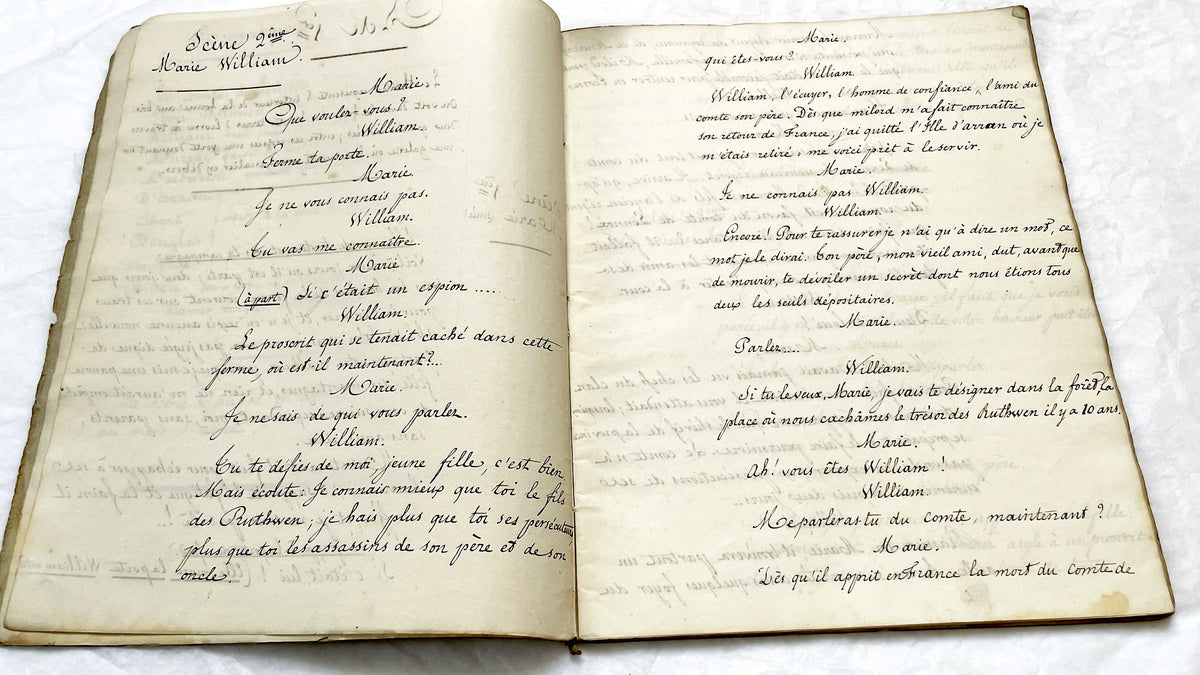 Scène 2ème
Marie William.
Marie.
Que voulez-vous?
William.
Ferme ta porte.
Marie.
Je ne vous connais pas.
William.
Tu vas me connaître.
Marie
(à part) Si c'était un espion .....
William.
Le proscrit qui se tenait caché dans cette
ferme, où est-il maintenant?..
Marie.
Je ne sais de qui vous parlez.
William.
Tu te défies de moi, jeune fille, c'est bien,
Mais écoute: Je connais mieux que toi le fils
des Ruthwen; je hais plus que toi ses persécuteurs
plus que toi les assassins de son père et de son
oncle.
Marie.
qui êtes-vous?
William.
William, l'écuyer, l'homme de confiance, l'ami du
comte son père. Dès que milord m'a fait connaître
son retour de France, j'ai quitté l'Ile d'arran où je
m'étais retiré; me voici prêt à le servir.
Marie.
Je ne connais pas William.
William.
Encore! Pour te rassurer je n'ai qu'à dire un mot, ce
mot je le dirai. Ton père, mon vieil ami, dut, avant que
de mourir, te dévoiler un secret dont nous étions tous
deux les seuls dépositaires.
Marie.
Parlez....
William.
Si tu le veux, Marie, je vais te désigner dans la forêt, la
place où nous cachâmes le trésor des Ruthwen il y a 10 ans.
Marie.
Ah! vous êtes William!
William
Me parleras tu du comte, maintenant?
Marie.
Dès qu'il apprit en France la mort du comte de